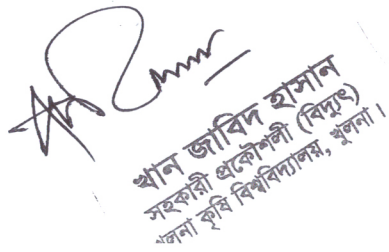 খান জাবিদ হাসান
সহকারী প্রকৌশলী (বিদ্যুৎ)
খুলনা কৃষি বিশ্ববিদ্যালয়, খুলনা।